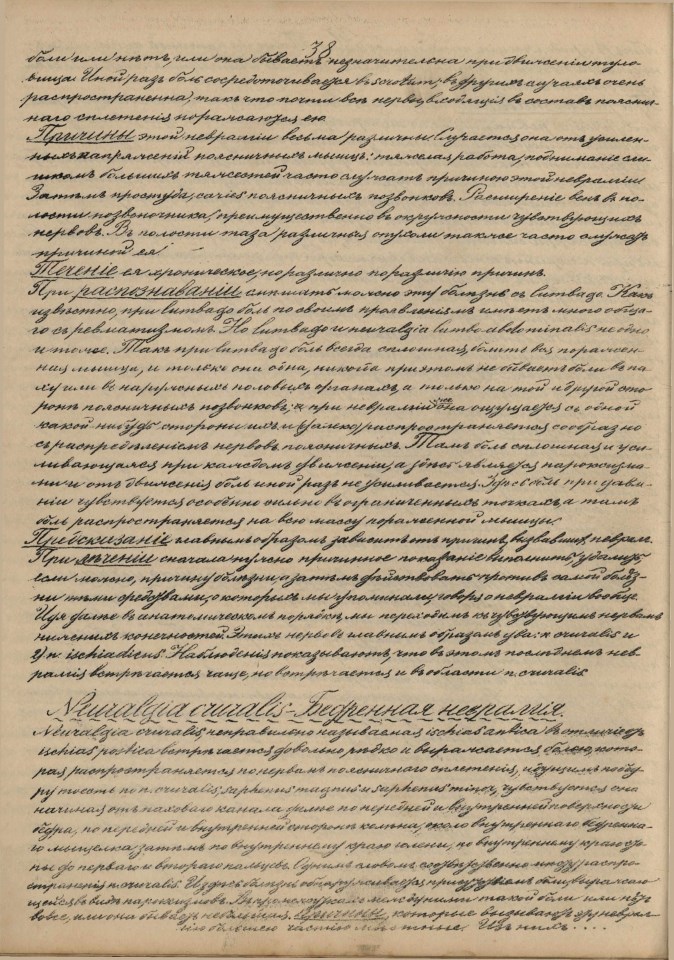 38
боли или нѣтъ, или она бываетъ незначительна при движеніи туло-
вища. Иной разъ боль сосредоточивается въ scrotum; въ другихъ случаяхъ очень
распространенна, такъ что почти всѣ нервы, входящіе въ составъ пояснич-
наго сплетенія поражаются ею.
Причины этой невралгіи весьма различны. Случается она отъ усилен-
ныхъ напряженій поясничныхъ мышцъ: тяжелая работа, подниманіе сли-
шкомъ большихъ тяжестей часто служатъ причиною этой невралгіи.
Затѣмъ простуда, caries поясничныхъ позвонковъ. Расширеніе венъ въ по-
лости позвоночника, преимущественно въ окружности чувствующихъ
нервовъ. Въ полости таза различныя опухоли также часто служатъ
причиной ея.
Теченіе ея хроническое, но различно по различію причинъ.
При распознаваніи смѣшать можно эту болѣзнь съ lumbago. Какъ
извѣстно, при lumbago боль по своимъ проявленіямъ имѣетъ много обща-
го съ ревматизмомъ. Но lumbago и neuralgia lumbo-abdominalis не одно
и тоже. Такъ при lumbago боль всегда сплошная, болитъ вся поражен-
ная мышца, и только она одна, никогда при этомъ не бываетъ боли въ па-
ху или въ наружныхъ половыхъ органахъ, а только на той и другой сто-
ронѣ поясничныхъ позвонковъ; а при невралгіи же она ощущается съ одной
какой нибудь стороны ихъ и далеко распространяется сообразно
съ распредѣленіемъ нервовъ поясничныхъ. Тамъ боль сплошная и уси-
ливающаяся при каждомъ движеніи, а здѣсь является пароксизма-
ми и отъ движенія боль иной разъ не усиливается. Здѣсь боль при давле-
ніи чувствуется особенно сильно въ ограниченныхъ точкахъ, а тамъ
боль распространяется на всю массу пораженной мышцы.
Предсказаніе главнымъ образомъ зависитъ отъ причинъ, вызвавшихъ невралг.
При лѣченіи сначала нужно причинное показаніе выполнить, удалить,
если можно, причину болѣзни, а затѣмъ дѣйствовать противъ самой болѣз-
ни тѣми средствами, о которыхъ мы упоминали, говоря о невралгіи вообще.
Идя далѣе въ анатомическомъ порядкѣ, мы переходимъ къ чувствующимъ нервамъ
нижнихъ конечностей. Этихъ нервовъ главнымъ образомъ два: n. cruralis и
2) n. ischiadicus. Наблюденія показываютъ, что въ этомъ послѣднемъ нев-
ралгія встрѣчается чаще, но встрѣчается и въ области n. cruralis.
Neuralgia cruralis - Бедренная невралгія.
Neuralgia cruralis неправильно называемая ischias antica въ отличіе отъ
ischias postica встрѣчается довольно рѣдко и выражается болью, кото-
рая распространяется по нервамъ поясничнаго сплетенія, идущимъ по
т.е. по n. cruralis, saphenus magnus и saphenus minor, чувствуется она
начиная отъ паховаго канала далѣе по передней и внутренней поверхности
бедра, по передней и внутренней сторонѣ колѣна, около внутренняго бедренна-
го мыщелка, затѣмъ по внутреннему краю голени, по внутреннему краю сто-
пы до перваго и втораго пальцевъ. Однимъ словомъ соотвѣтственно распро-
страненію n. cruralis. И здѣсь болѣзнь обнаруживается боли, выражаю-
щейся въ видѣ пароксизмовъ. Въ промежуткахъ между ними такой боли или нѣтъ
вовсе, или она бываетъ небольшая. Причины, которыя вызываютъ эту неврал-
гію большею частію мѣстныя. Изъ нихъ....